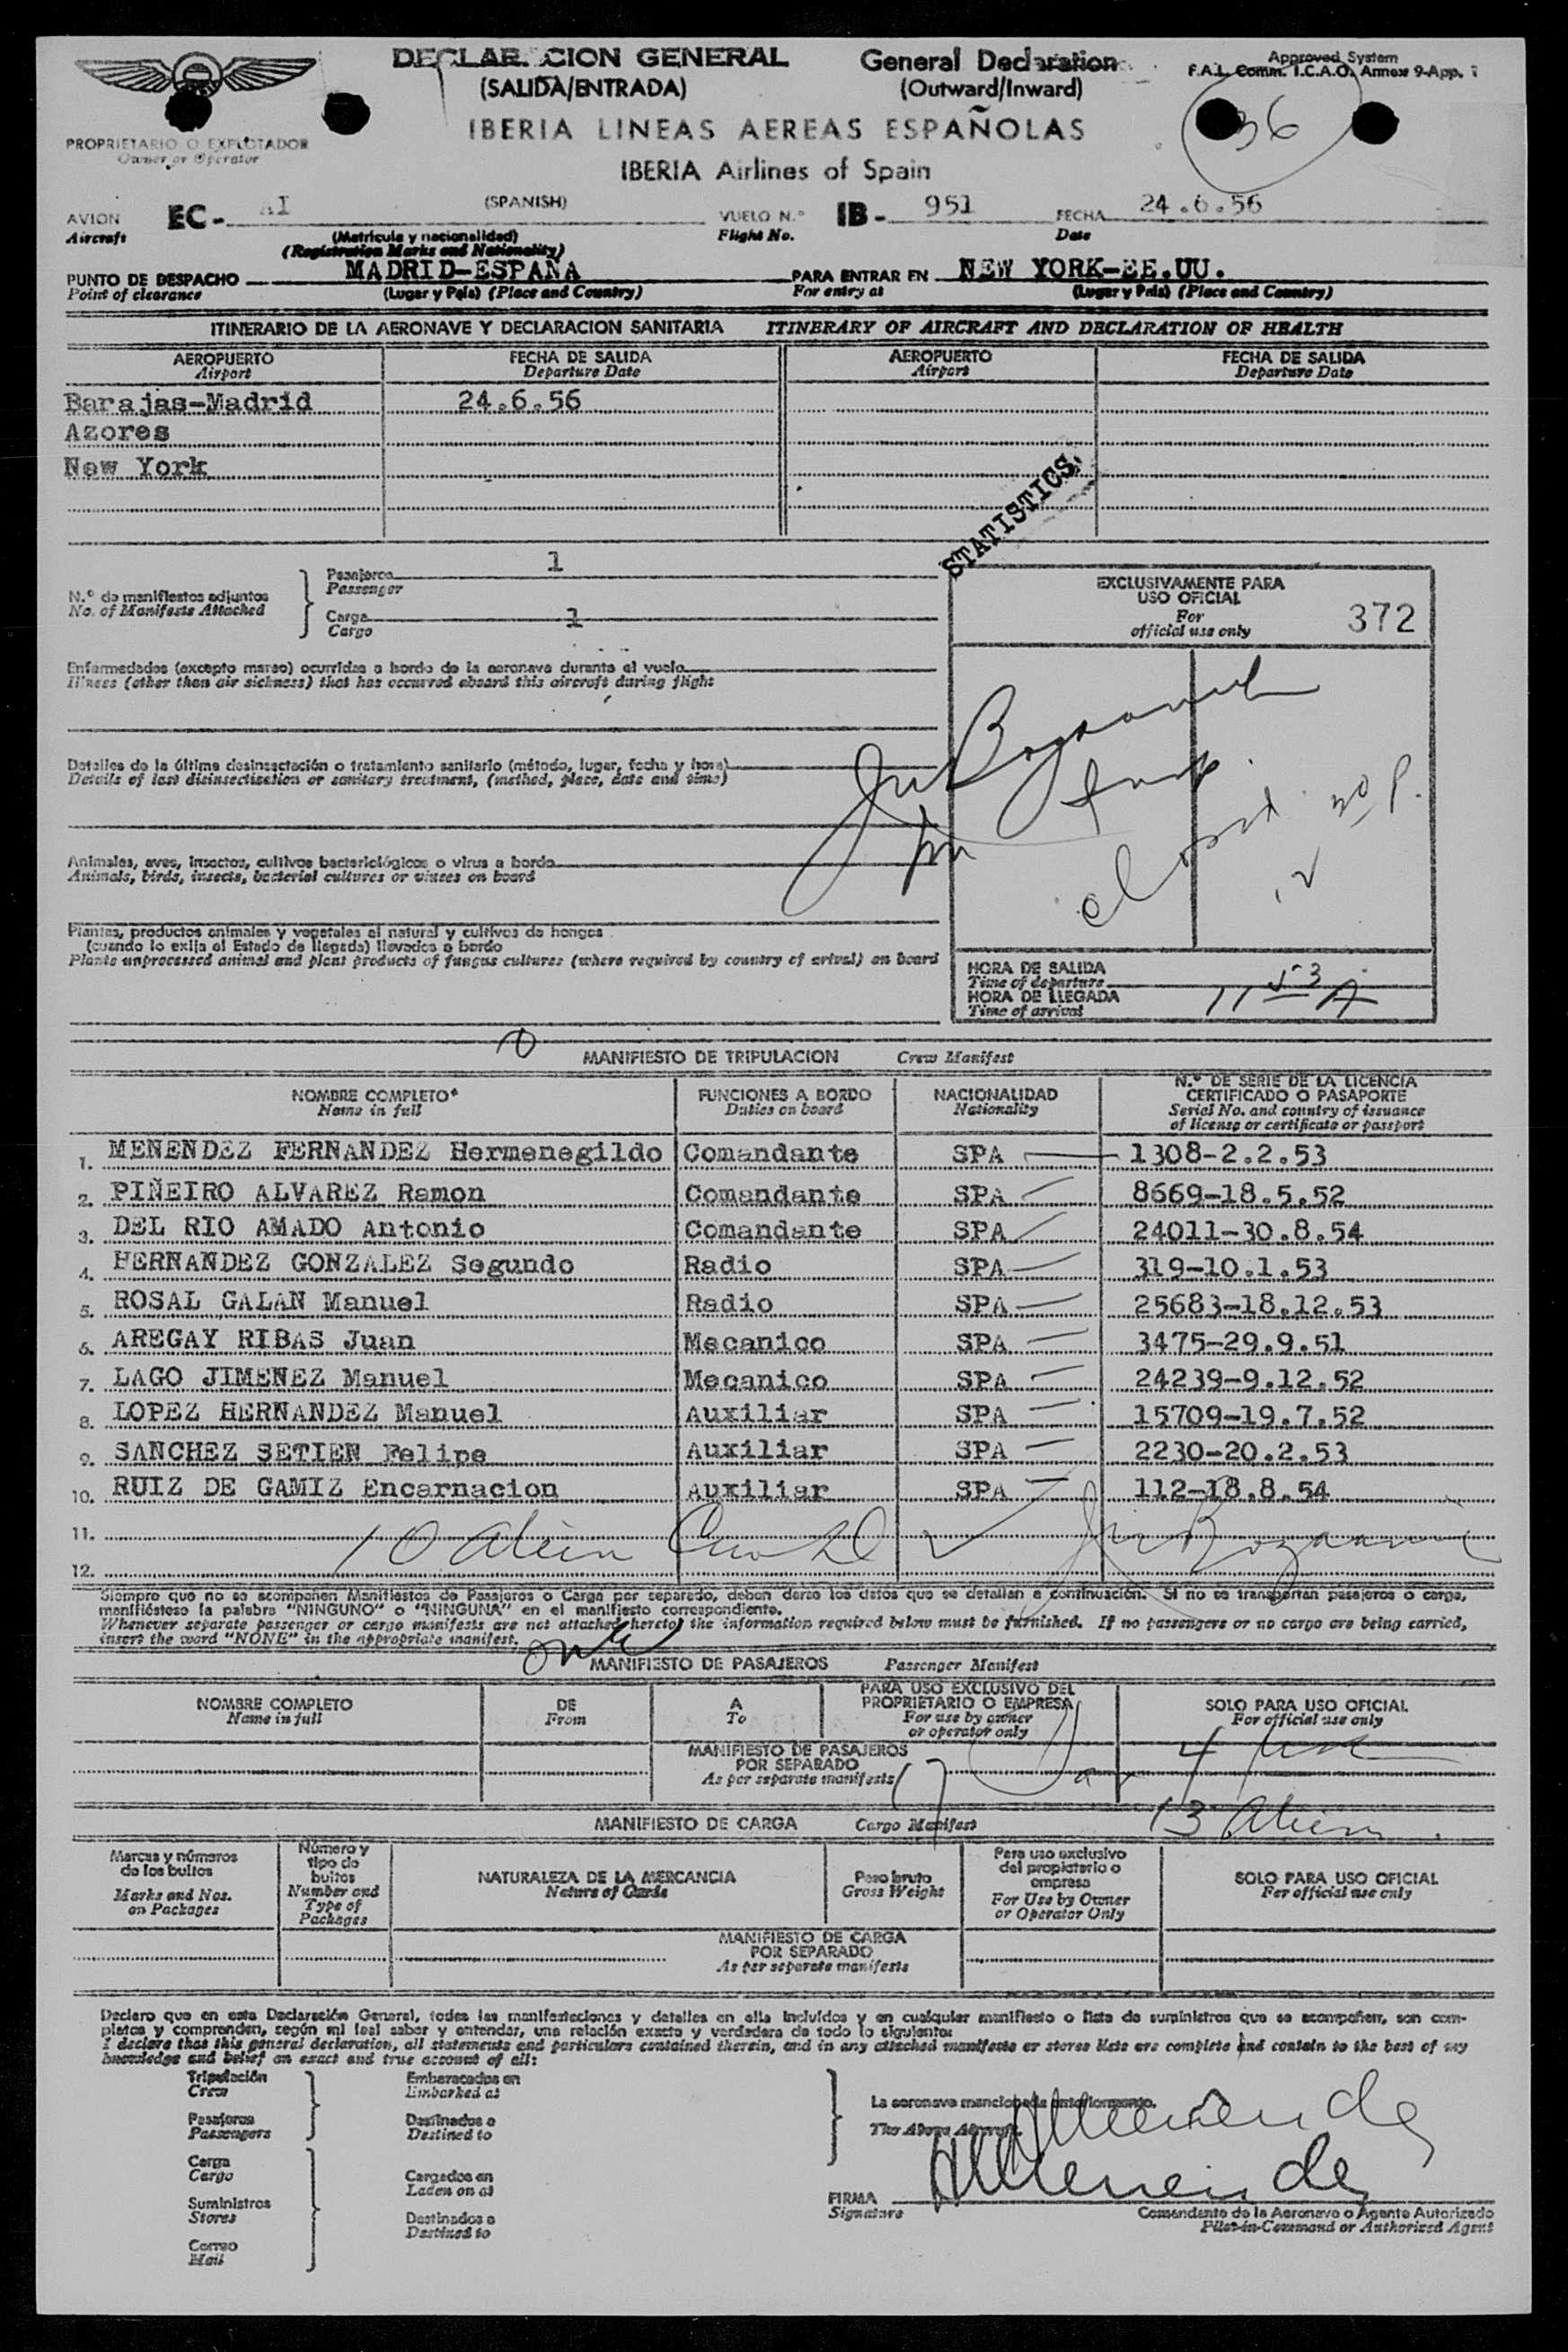 DECLAR CION GENERAL General Declaration
(SALIDA/ENTRADA) (Outward/Inward)
Approved System
F.A.L. Comm. I.C.A.O. Annex 9-App. 1
36
IBERIA LINEAS AEREAS ESPAÑOLAS
IBERIA Airlines of Spain
PROPRIETARIO O EXPLOTADOR
Owner or Operator
AVION EC- AI (SPANISH) VUELO N.º IB- 951 FECHA 24.6.56
Aircraft (Matrícula y nacionalidad) Flight No. Date
(Registration Marks and Nationality)
PUNTO DE DESPACHO MADRID-ESPAÑA PARA ENTRAR EN NEW YORK-EE.UU.
Point of clearance (Lugar y País) (Place and Country) For entry at (Lugar y País) (Place and Country)
ITINERARIO DE LA AERONAVE Y DECLARACION SANITARIA ITINERARY OF AIRCRAFT AND DECLARATION OF HEALTH
AEROPUERTO FECHA DE SALIDA AEROPUERTO FECHA DE SALIDA
Airport Departure Date Airport Departure Date
Barajas-Madrid 24.6.56
Azores
New York
STATISTICS.
N.º de manifiestos adjuntos
No. of Manifests Attached
Pasajeros 1
Passenger
Carga 1
Cargo
EXCLUSIVAMENTE PARA
USO OFICIAL
For
official use only
372
Enfermedades (excepto mareo) ocurridas a bordo de la aeronave durante el vuelo
Illness (other than air sickness) that has occurred aboard this aircraft during flight
Detalles de la última desinsectación o tratamiento sanitario (método, lugar, fecha y hora)
Details of last disinsectisation or sanitary treatment, (method, place, date and time)
Animales, aves, insectos, cultivos bacteriológicos o virus a bordo
Animals, birds, insects, bacterial cultures or viuses on board
Plantas, productos animales y vegetales al natural y cultivos de hongos
(cuando lo exija el Estado de llegada) llevados a bordo
Plants unprocessed animal and plant products of fungus cultures (where required by country of arival) on board
HORA DE SALIDA
Time of departure
HORA DE LLEGADA 11 53 A
Time of arrival
10
MANIFIESTO DE TRIPULACION Crew Manifest
NOMBRE COMPLETO* FUNCIONES A BORDO NACIONALIDAD N.º DE SERIE DE LA LICENCIA
Name in full Duties on board Nationality CERTIFICADO O PASAPORTE
Serial No. and country of issuance
of license or certificate or passport
1. MENENDEZ FERNANDEZ Hermenegildo Comandante SPA 1308-2.2.53
2. PIÑEIRO ALVAREZ Ramon Comandante SPA 8669-18.5.52
3. DEL RIO AMADO Antonio Comandante SPA 24011-30.8.54
4. HERNANDEZ GONZALEZ Segundo Radio SPA 319-10.1.53
5. ROSAL GALAN Manuel Radio SPA 25683-18.12.53
6. AREGAY RIBAS Juan Mecanico SPA 3475-29.9.51
7. LAGO JIMENEZ Manuel Mecanico SPA 24239-9.12.52
8. LOPEZ HERNANDEZ Manuel Auxiliar SPA 15709-19.7.52
9. SANCHEZ SETIEN Felipe Auxiliar SPA 2230-20.2.53
10. RUIZ DE GAMIZ Encarnacion Auxiliar SPA 112-18.8.54
11.
10 Alien
12.
Siempre que no se acompañen Manifiestos de Pasajeros o Carga por separado, deben darse los datos que se detallan a continuación. Si no se transportan pasajeros o carga,
manifiéstese la palabra "NINGUNO" o "NINGUNA" en el manifiesto correspondiente.
Whenever separate passenger or cargo manifests are not attached hereto, the information required below must be furnished. If no passengers or no cargo are being carried,
insert the word "NONE" in the appropriate manifest.
MANIFIESTO DE PASAJEROS Passenger Manifest
NOMBRE COMPLETO DE A PARA USO EXCLUSIVO DEL SOLO PARA USO OFICIAL
Name in full From To PROPRIETARIO O EMPRESA For official use only
For use by owner
or operator only
MANIFIESTO DE PASAJEROS
POR SEPARADO
As per separate manifests
17 4
13 Alien
MANIFIESTO DE CARGA Cargo Manifest
Marcas y números
de los bultos
Marks and Nos.
on Packages
Número y
tipo de
bultos
Number and
Type of
Packages
NATURALEZA DE LA MERCANCIA
Nature of Goods
Peso bruto
Gross Weight
Para uso exclusivo
del propietario o
empresa
For Use by Owner
or Operator Only
SOLO PARA USO OFICIAL
For official use only
MANIFIESTO DE CARGA
POR SEPARADO
As per separate manifests
Declaro que en esta Declaración General, todas las manifestaciones y detalles en ella incluídos y en cualquier manifiesto o lista de suministros que se acompañen, son com-
pletos y comprenden, según mi leal saber y entender, una relación exacta y verdadera de todo lo siguiente:
I declare that this general declaration, all statements and particulars contained therein, and in any attached manifests or stores lists are complete and contain to the best of my
knowledge and belief an exact and true account of all:
Tripulación
Crew
Embarcados en
Embarked at
Pasajeros
Passengers
Destinados a
Destined to
Carga
Cargo
Cargados en
Laden on at
Suministros
Stores
Destinados a
Destined to
Correo
Mail
La aeronave mencionada anteriormente.
The Above Aircraft.
HMenendez
HMenendez
FIRMA
Signature
Comandante de la Aeronave o Agente Autorizado
Pilot-in-Command or Authorized Agent